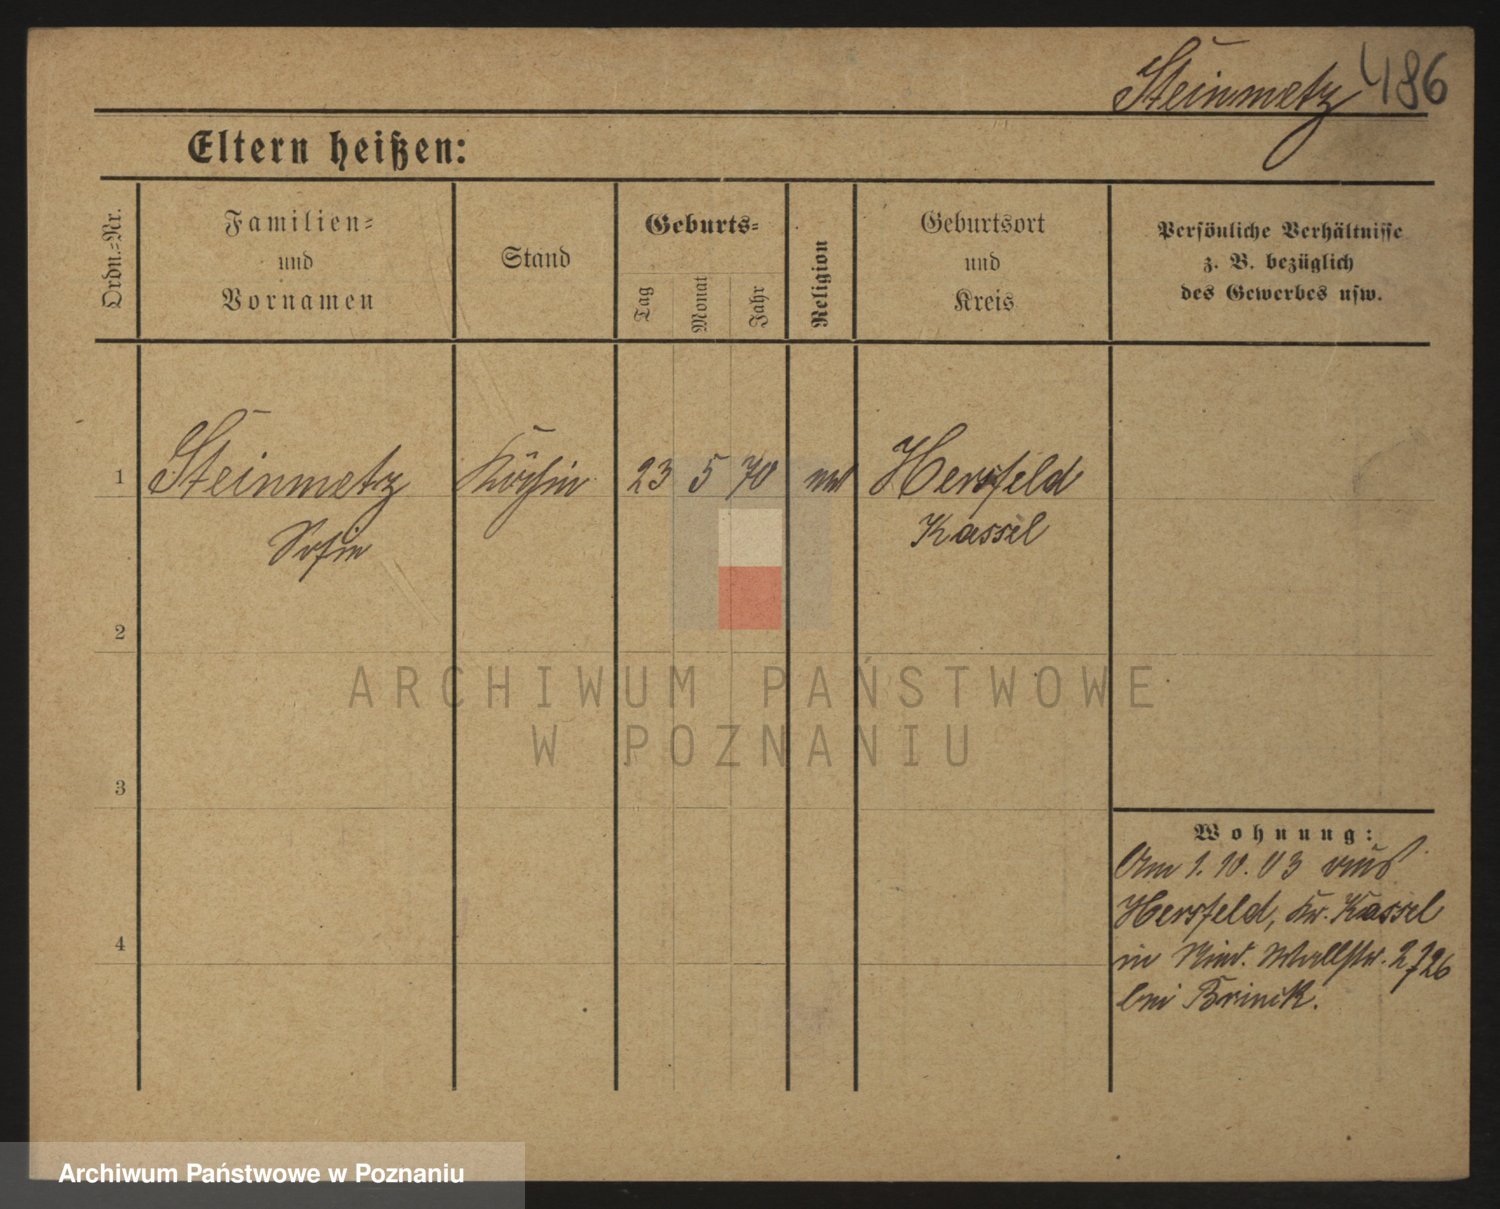 Steinmetz 486
Eltern heißen:
Ordn.=Nr.
Familien=
und
Vornamen
Stand
Geburts=
Tag
Monat
Jahr
Religion
Geburtsort
und
Kreis
Persönliche Verhältnisse
z. B. bezüglich
des Gewerbes usw.
1 Steinmetz Köchin 23 5 70 Hersfeld
Sofie Kassel
2
3
4
Wohnung:
Am 1. 10. 03 aus
Hersfeld, Kr. Kassel
in Wallstr.
bei Brinck.
ARCHIWUM PAŃSTWOWE
W POZNANIU
Archiwum Państwowe w Poznaniu